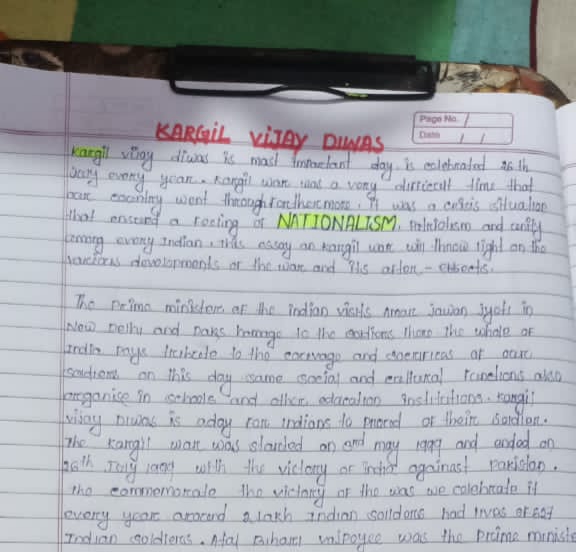 KARGIL VIJAY DIWAS
Page No.
Date
Kargil vijay diwas is most important day is celebrated 26 th
July every year. Kargil war was a very difficult time that
our country went through forthermore, it was a crisis situation
that ensured a feeling of NATIONALISM, Patriotism and unity
among every Indian. this essay on kargil war will throw light on the
various developments of the war and its after-effects.
The Prime minister of the indian visits Amar Jawan Jyoti in
New Delhi and Pays homage to the soldiers there the whole of
India Pays tribute to the courage and sacrifices of our
soldiers on this day some social and cultural functions also
organise in schools and other education institutions. kargil
vijay Diwas is aday for indians to proced of their soldier.
The Kargil war was started on 3rd may 1999 and ended on
26th July 1999 with the victory of india against Pakistan.
the commemorate the victory of the was we celebrate it
every year around 2 lakh Indian soildors had lives of 527
Indian soldiers. Atal Bihari vajpoyee was the Prime ministe